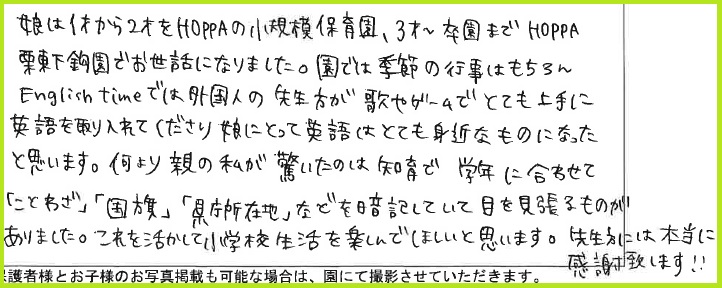 娘は1才から2才をHOPPAの小規模保育園、3才〜卒園までHOPPA
栗東下鈎園でお世話になりました。園では季節の行事はもちろん
English timeでは外国人の先生方が歌やゲームでとても上手に
英語を取り入れてくださり娘にとって英語はとても身近なものになった
と思います。何より親の私が驚いたのは知育で学年に合わせて
「ことわざ」「国旗」「県庁所在地」などを暗記していて目を見張るものが
ありました。これを活かして小学校生活を楽しんでほしいと思います。先生方には本当に
感謝致します!!
護者様とお子様のお写真掲載も可能な場合は、園にて撮影させていただきます。